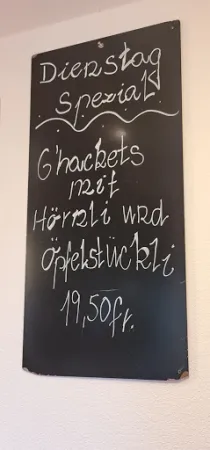 Dienstag
Spezial
G'hackets
mit
Hörnli und
Öpfelstückli
19,50fr.